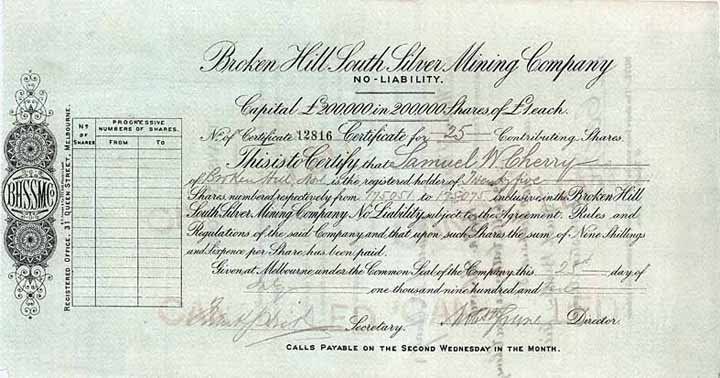 Broken Hill South Silver Mining Company
NO-LIABILITY.
Capital £200000 in 200000 Shares of £1 each.
No. of Certificate 12816 Certificate for 25 Contributing Shares
This is to Certify that Samuel W. Cherry
of Broken Hill, is the registered holder of Twenty five
Shares numbered respectively from to inclusive in the Broken Hill
South Silver Mining Company No Liability subject to the Agreement, Rules and
Regulations of the said Company, and that upon such Shares the sum of Nine Shillings
and Sixpence per Share, has been paid.
Given at Melbourne, under the Common Seal of the Company, this day of
one thousand nine hundred and
Secretary. Director.
CALLS PAYABLE ON THE SECOND WEDNESDAY IN THE MONTH.
No. OF SHARES
PROGRESSIVE NUMBERS OF SHARES.
FROM TO
REGISTERED OFFICE, 31 QUEEN STREET, MELBOURNE.
BHSSMCo
CANCELLED